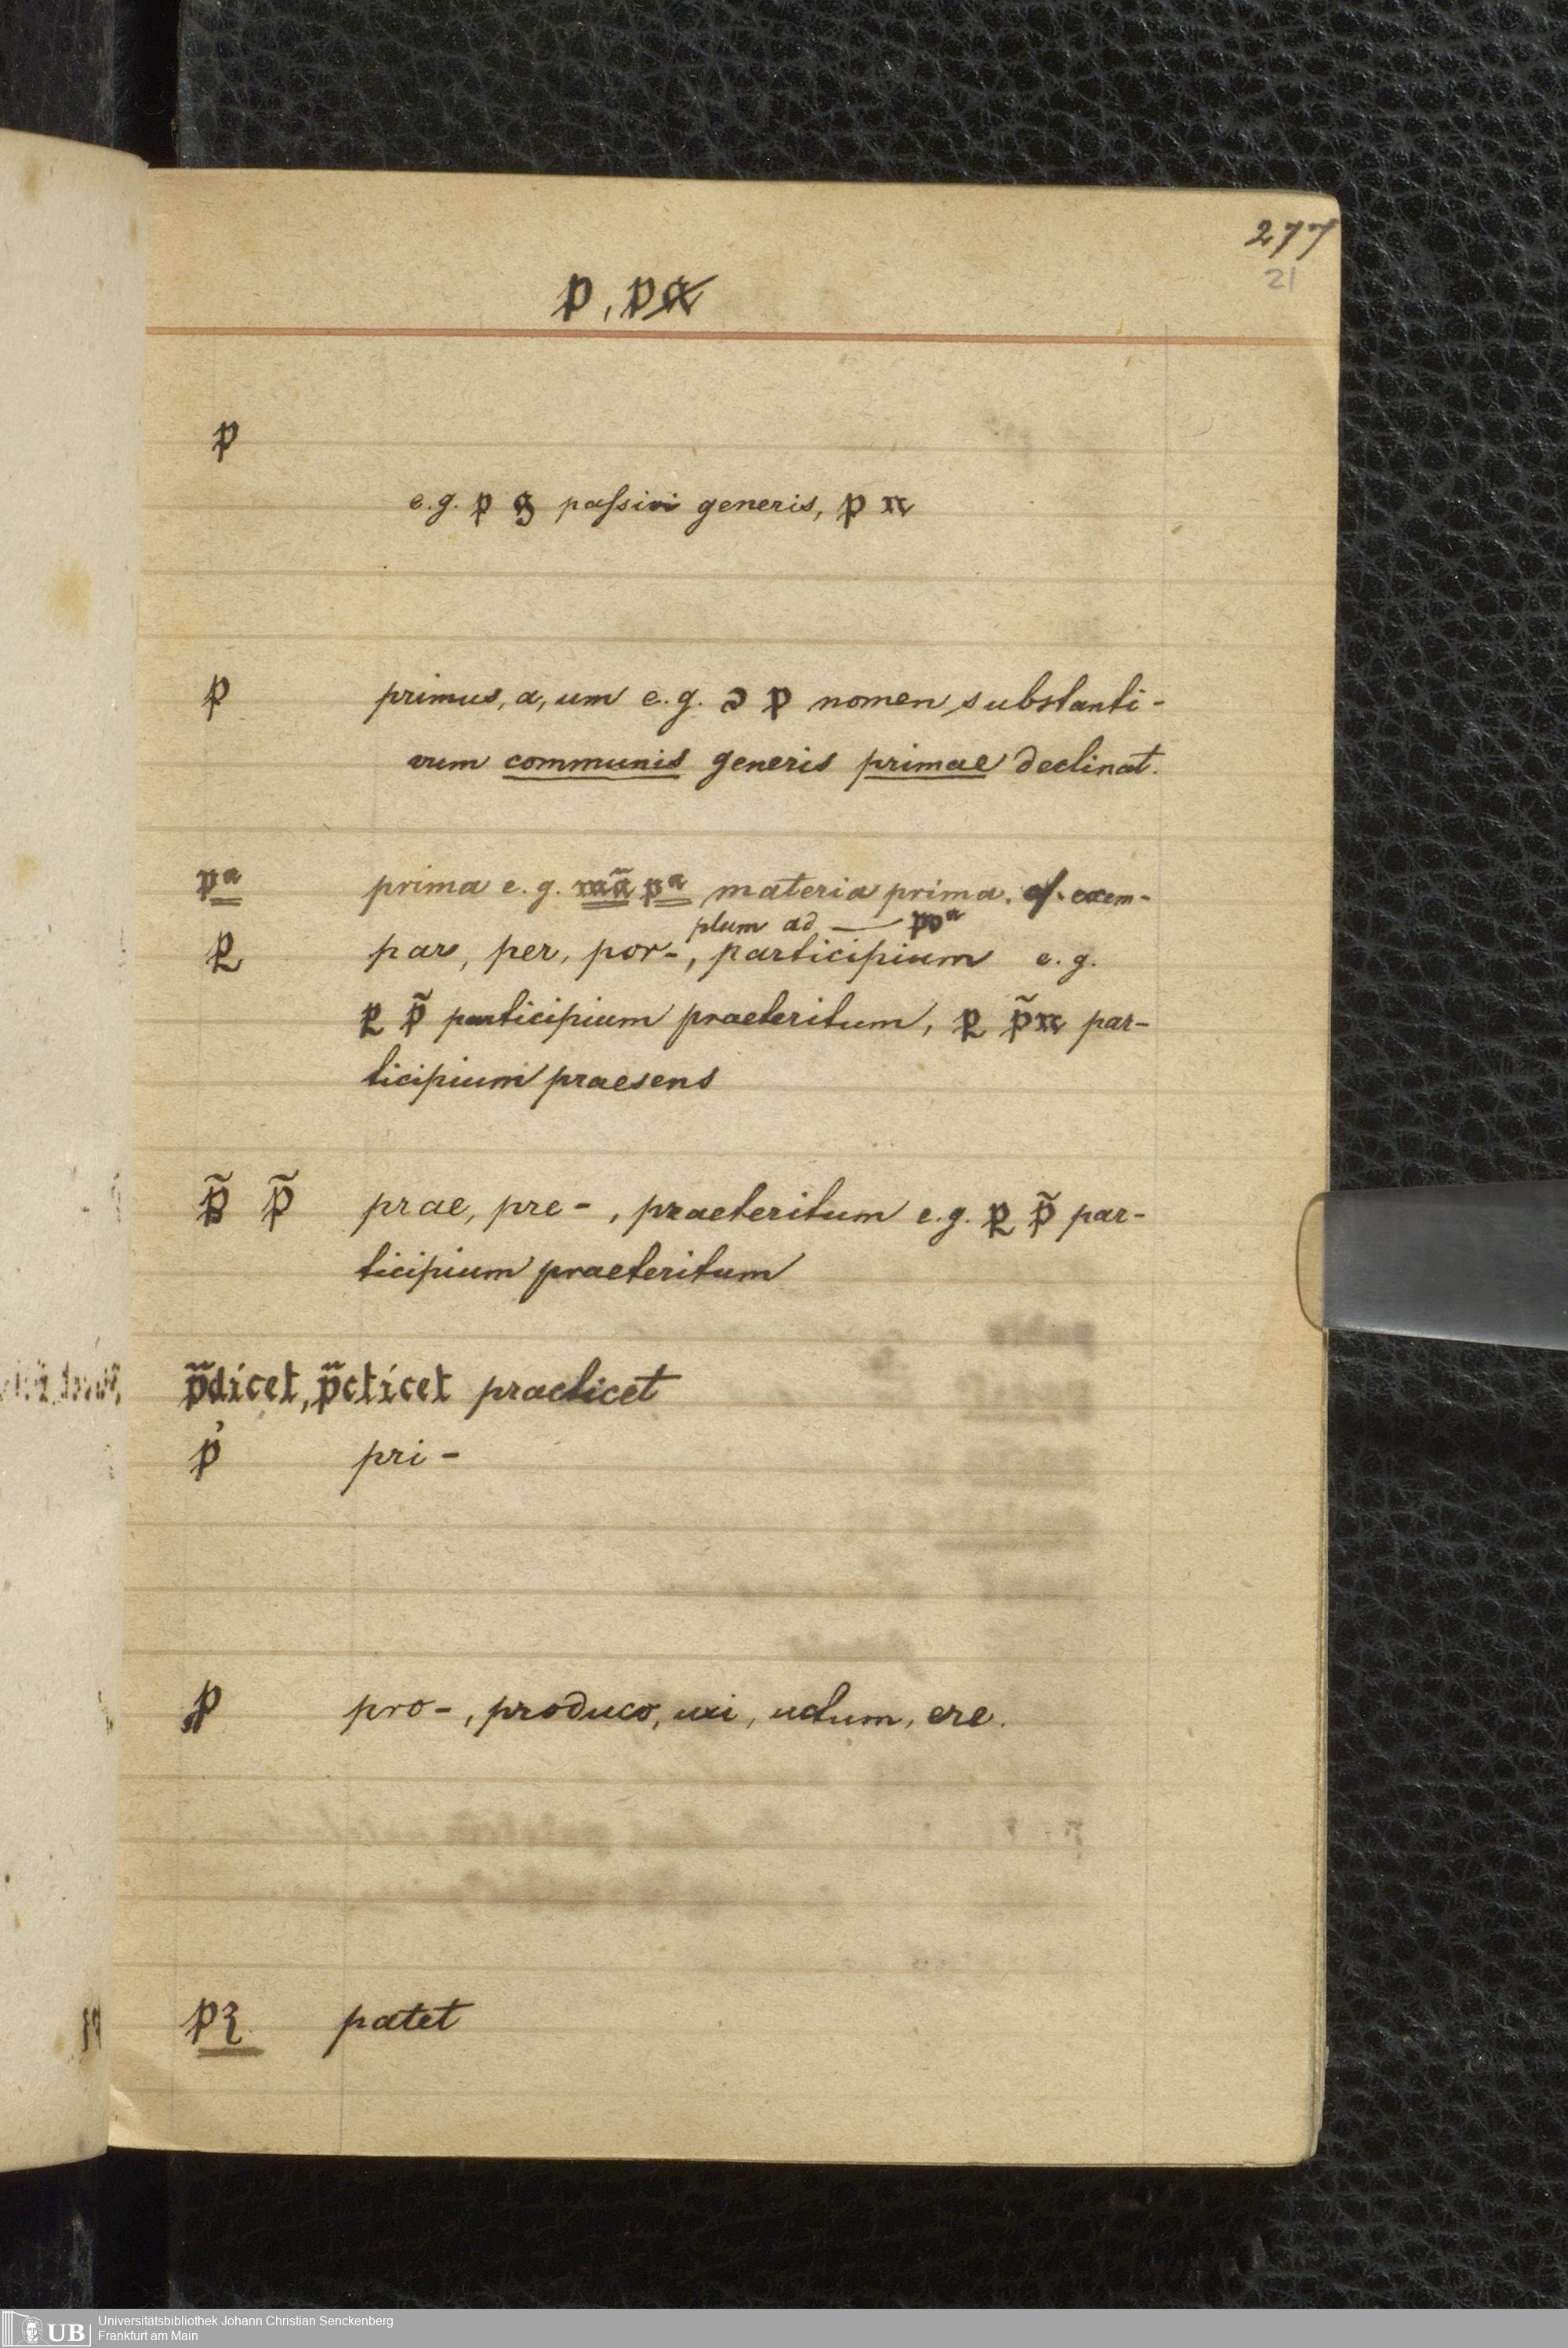 277
21
p, pa
p
e.g. p g passivi generis, p n
p primus, a, um e.g. ɔ p nomen substanti-
vum communis generis primae declinat.
pª prima e.g. mã pª materia prima. cf. exem-
plum ad — poª
ꝑ par, per, por-, participium e.g.
ꝑ p̃ participium praeteritum, ꝑ p̃n par-
ticipium praesens
p̃ p̃ prae, pre-, praeteritum e.g. ꝑ p̃ par-
ticipium praeteritum
p̃dicet, p̃cticet practicet
p̓ pri-
ꝓ pro-, produco, uxi, uctum, ere.
pꝫ patet
UB Universitätsbibliothek Johann Christian Senckenberg
Frankfurt am Main